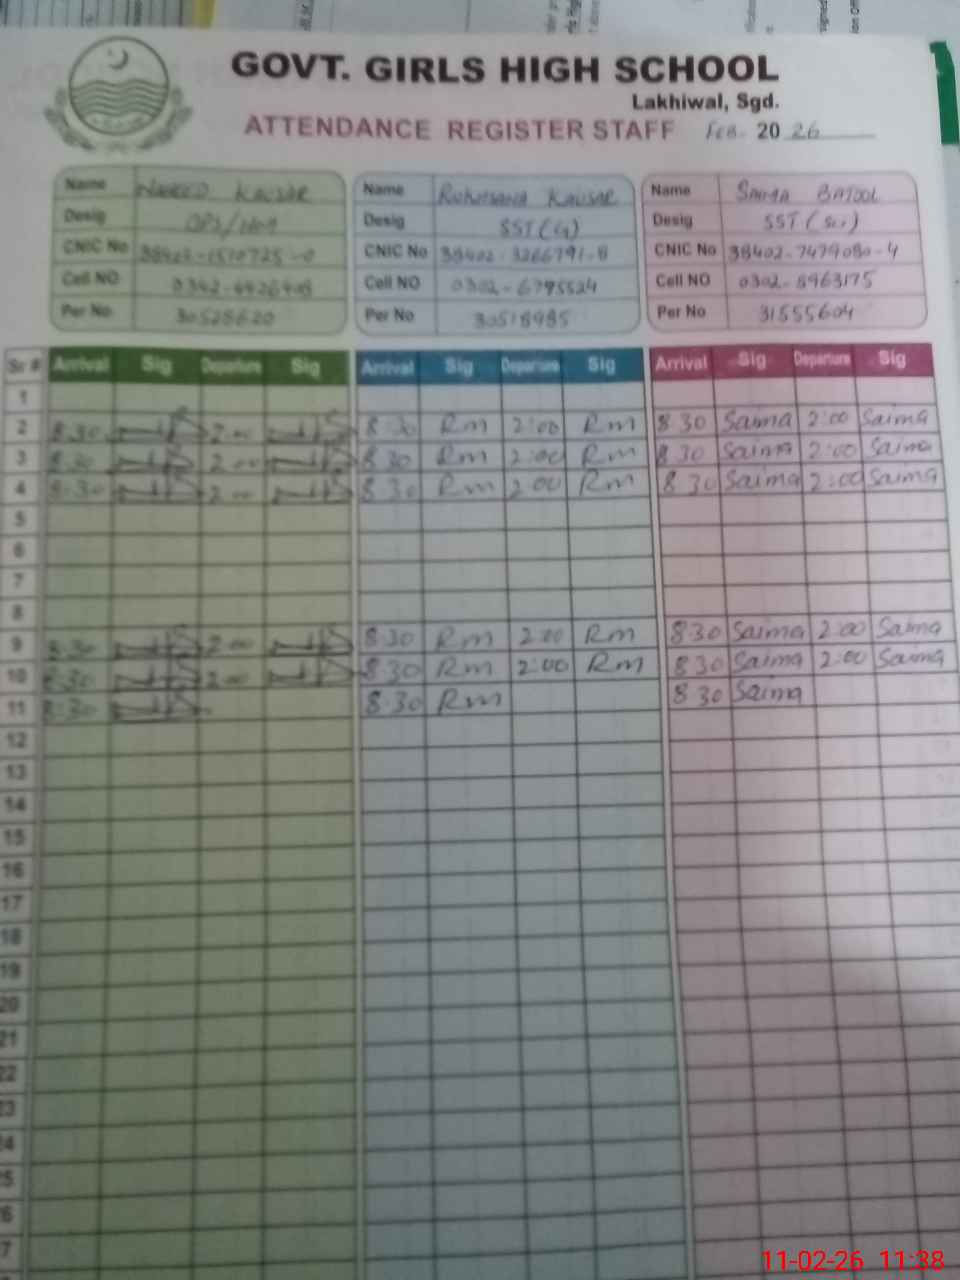 GOVT. GIRLS HIGH SCHOOL
Lakhiwal, Sgd.
ATTENDANCE REGISTER STAFF Feb- 2026
Name Kausar Name Rukhsana Kausar Name Saima Batool
Desig Desig SST (G) Desig SST (Sci)
CNIC No CNIC No 38402-3266791-8 CNIC No 38402-7479080-4
Cell NO Cell NO 0302-6795524 Cell NO 0302-8963175
Per No 30528620 Per No 30518985 Per No 31555604
Sr # Arrival Sig Departure Sig Arrival Sig Departure Sig Arrival Sig Departure Sig
1
2 8:30 2:00 8:30 Rm 2:00 Rm 8:30 Saima 2:00 Saima
3 8:30 2:00 8:30 Rm 2:00 Rm 8:30 Saima 2:00 Saima
4 8:30 2:00 8:30 Rm 2:00 Rm 8:30 Saima 2:00 Saima
5
6
7
8
9 8:30 2:00 8:30 Rm 2:00 Rm 8:30 Saima 2:00 Saima
10 8:30 2:00 8:30 Rm 2:00 Rm 8:30 Saima 2:00 Saima
11 8:30 8:30 Rm 8:30 Saima
12
13
14
15
16
17
18
19
20
21
22
23
24
5
6
7
11-02-26 11:38